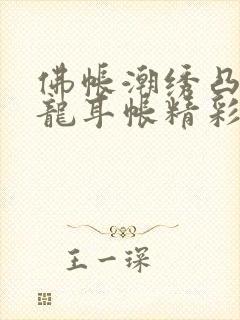 佛帐潮绣凸
龍耳帐精彩
王一琛